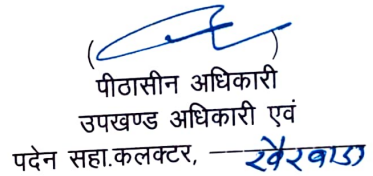 पीठासीन अधिकारी
उपखण्ड अधिकारी एवं
पदेन सहा.कलक्टर, खैरवाडा